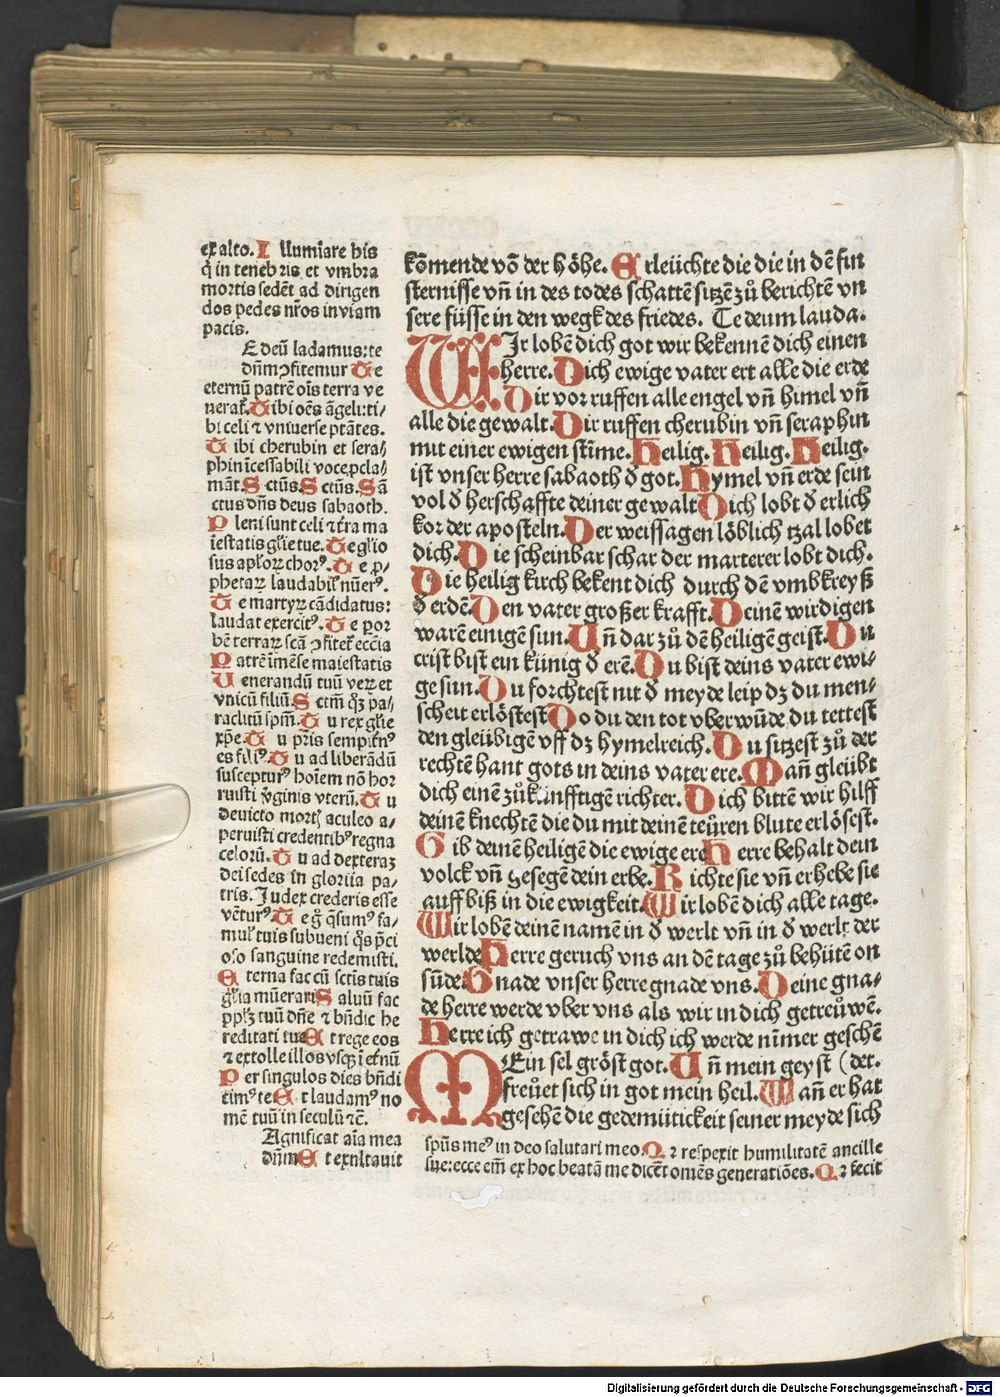 ex alto. I llumīare his
q̄ in tenebris et vmbra
mortis sedēt ad dirigen
dos pedes nr̄os in viam
pacis.
E deū ladamus: te
dn̄m ꝯfitemur Te
eternū patrē oīs terra ve
nerat̄. Tibi oēs āgeli: ti/
bi celi ⁊ vniuerse ptātes.
T ibi cherubin et sera/
phin īcessabili voce ꝓcla/
māt. S ctūs. S ctūs. Sā
ctus dn̄s deus sabaoth.
P leni sunt celi ⁊ tr̄a ma
iestatis gl̄ie tue. Te glīo
sus apl̄oꝝ chorꝰ. T e ꝓ/
phetaꝝ laudabil̄ nūerꝰ.
T e martyꝝ cādidatus:
laudat exercitꝰ. T e por
bē terraꝝ scā ꝯfitet̄ ecc̄ia
P atrē īmēse maiestatis
V enerandū tuū veꝝ et
vnicū filiū. S ctm̄ qꝫ pa/
raclitū spm̄. T u rex gl̄ie
xp̄e. T u pr̄is sempit̄nꝰ
es filiꝰ. T u ad liberādū
suscepturꝰ hoīem nō hor
ruisti v̄ginis vterū. T u
deuicto mortꝭ aculeo a/
peruisti credentibꝰ regna
celorū. T u ad dexteraꝫ
dei sedes in gloriia pa/
tris. Judex crederis esse
vēturꝰ. T e g̊ qͣsumꝰ fa/
mul̄ tuis subueni q̊s p̄ci
oſo sanguine redemisti.
E terna fac cū sctīs tuis
gl̄ia mūerari S aluū fac
pplꝫ tuū dn̄e ⁊ bn̄dic he
reditati tue E t rege eos
⁊ extolle illos vsqꝫ ī et̄nū
P er singulos dies bn̄di
cimꝰ te E t laudamꝰ no
mē tuū in seculū ⁊c̄.
Agnificat aīa mea
dn̄m E t exnltauit
kōmende vō der höhe. E rleüchte die die in dē fin
sternisse vn̄ in des todes schattē sitzē zů berichtē vn
sere füsse in den wegk des friedes. Te deum lauda.
WIr lobē dich got wir bekennē dich einen
herre. Dich ewige vater ert alle die erde
Dir vor ruffen alle engel vn̄ himel vn̄
alle die gewalt. Dir ruffen cherubin vn̄ seraphin
mit einer ewigen stīme. Heilig. Heilig. Heilig.
ist vnser herre sabaoth ð got. Hymel vn̄ erde sein
vol ð herschaffte deiner gewalt Dich lobt ð erlich
kor der aposteln. Der weissagen löblich tzal lobet
dich. Die scheinbar schar der marterer lobt dich.
Die heilig kirch bekent dich durch dē vmbkreyß
ð erdē. Den vater großer krafft. Deinē wirdigen
warē einigē sun. Vn̄ dar zů dē heiligē geist. Du
crist bist ein künig ð erē. Du bist deins vater ewi/
ge sun. Du forchtest nit ð meyde leip dz du men/
scheit erlöstest Do du den tot vberwūde, du tettest
den gleübigē vff dz hymelreich. Du sitzest zů der
rechtē hant gots in deins vater ere. Man̄ gleübt
dich einē zůkunfftigē richter. Dich bittē wir hilff
deinē knechtē die du mit deinē teüren blute erlösest.
Gib deinē heiligē die ewige ere Herre behalt dein
volck vn̄ gesegē dein erbe. Richte sie vn̄ erhebe sie
auff biß in die ewigkeit. Wir lobē dich alle tage.
Wir lobē deinē namē in ð werlt vn̄ in ð werlt der
werlde Herre geruch vns an dē tage zů behütē on
sūde. Gnade vnser herre gnade vns. Deine gna/
de herre werde vber vns als wir in dich getreüwē.
Herre ich getrawe in dich ich werde nīmer geschē
MEin sel gröst got. Vn̄ mein geyst (det.
freüet sich in got mein heil. Wan̄ er hat
gesehē die gedemütickeit seiner meyde sich
spūs meꝰ in deo salutari meo. Q ꝛ respexit humilitatē ancille
sue: ecce em̄ ex hoc beatā me dicēt omēs generatiōes. Q ꝛ fecit
Digitalisierung gefördert durch die Deutsche Forschungsgemeinschaft - DFG